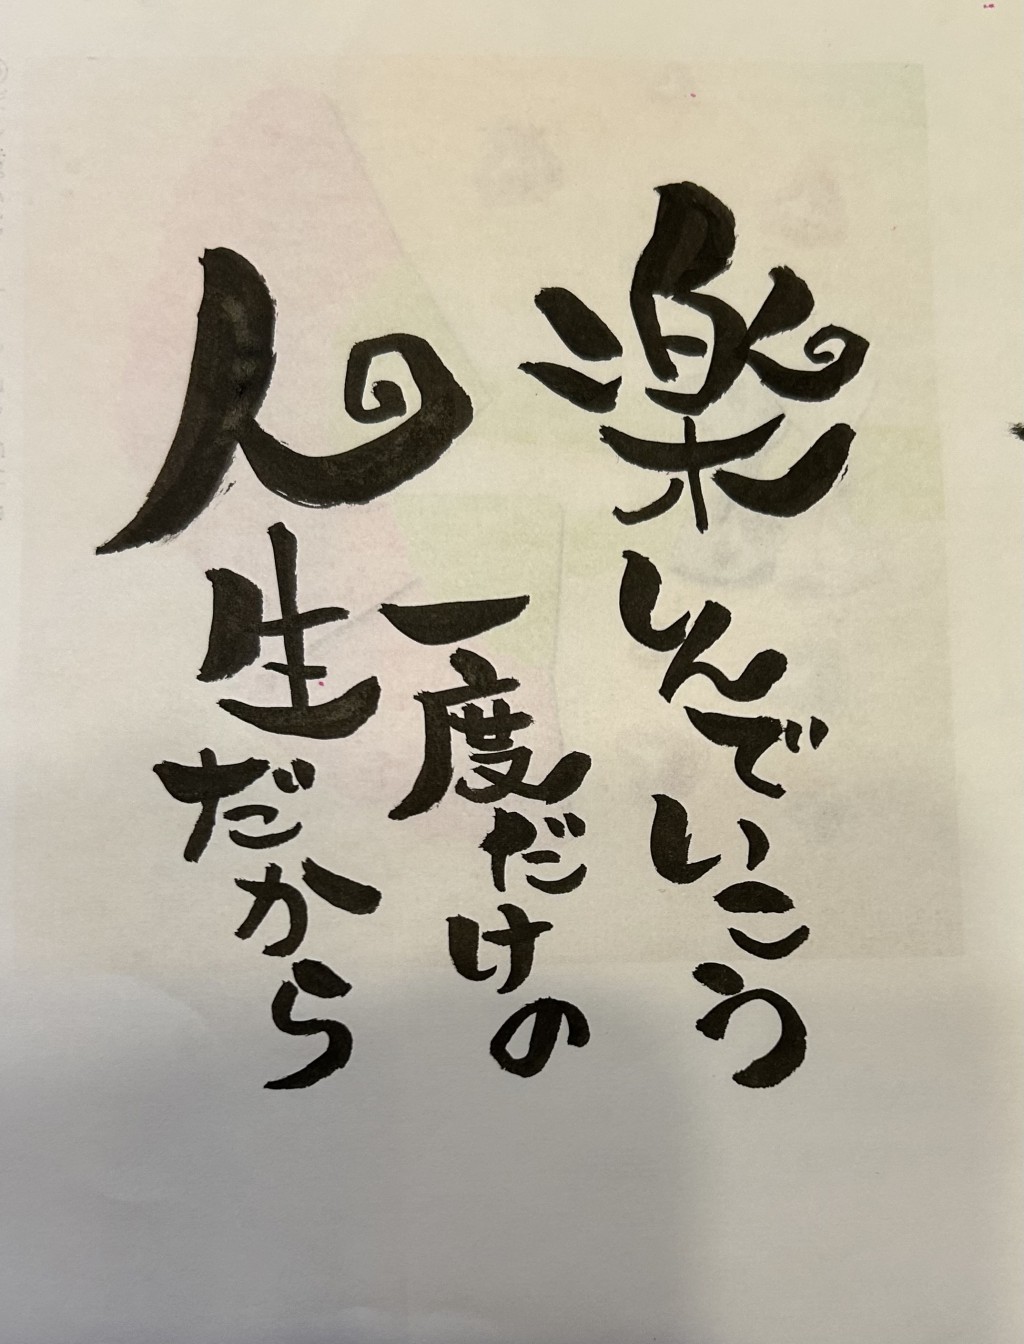 楽しんでいこう
一度だけの
人生だから